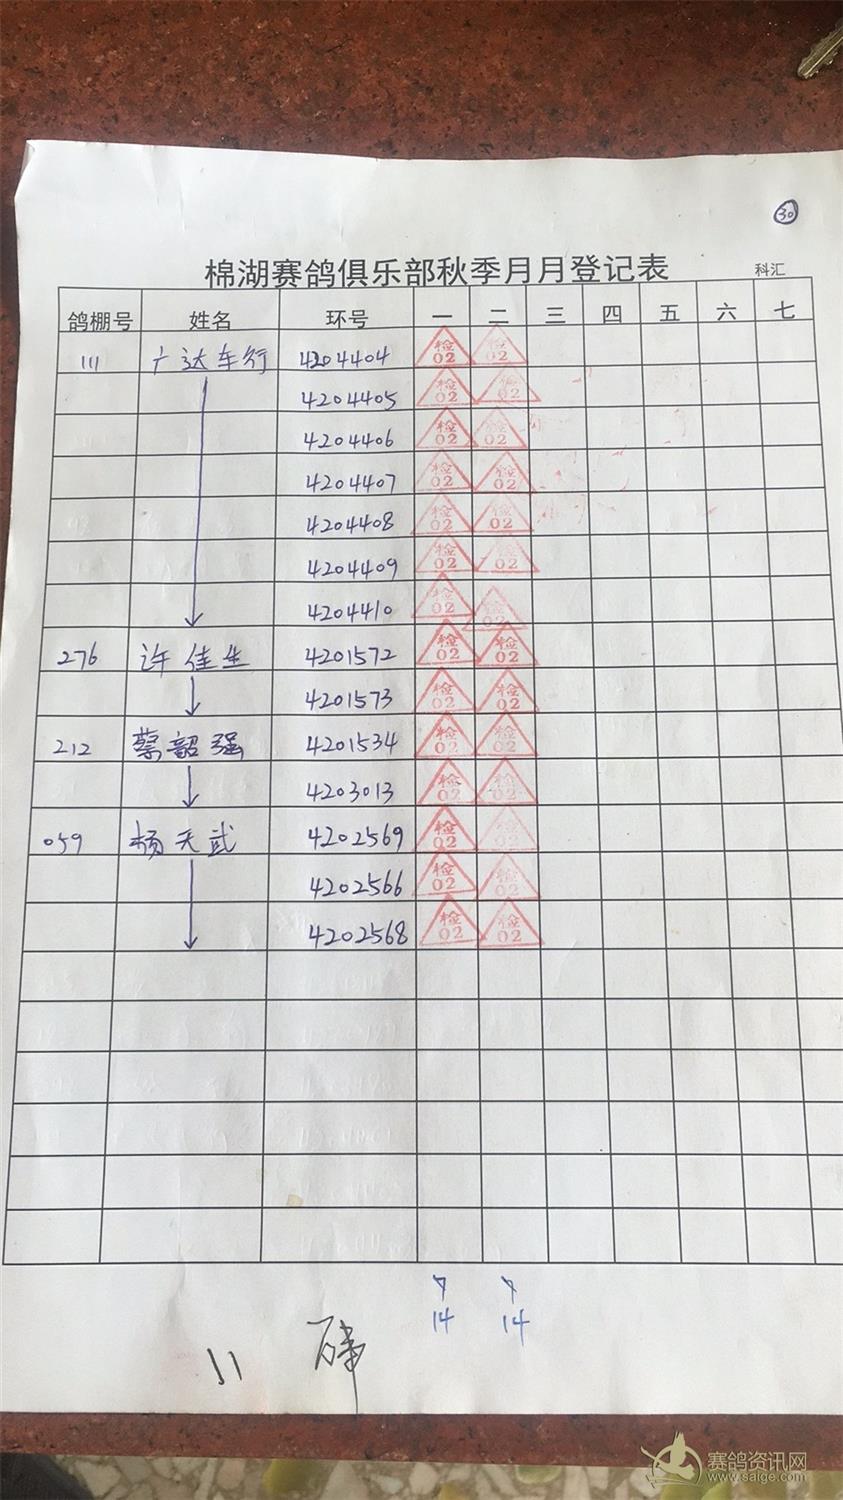 30
棉湖赛鸽俱乐部秋季月月登记表 科汇
鸽棚号 姓名 环号 一 二 三 四 五 六 七
111 广达车行 4204404 检02 检02
4204405 检02 检02
4204406 检02 检02
4204407 检02 检02
4204408 检02 检02
4204409 检02 检02
4204410 检02 检02
276 许佳生 4201572 检02 检02
4201573 检02 检02
212 蔡韶强 4201534 检02 检02
4203013 检02 检02
059 杨天武 4202569 检02 检02
4202566 检02 检02
4202568 检02 检02
14 14
11
赛鸽资讯网
www.saige.com